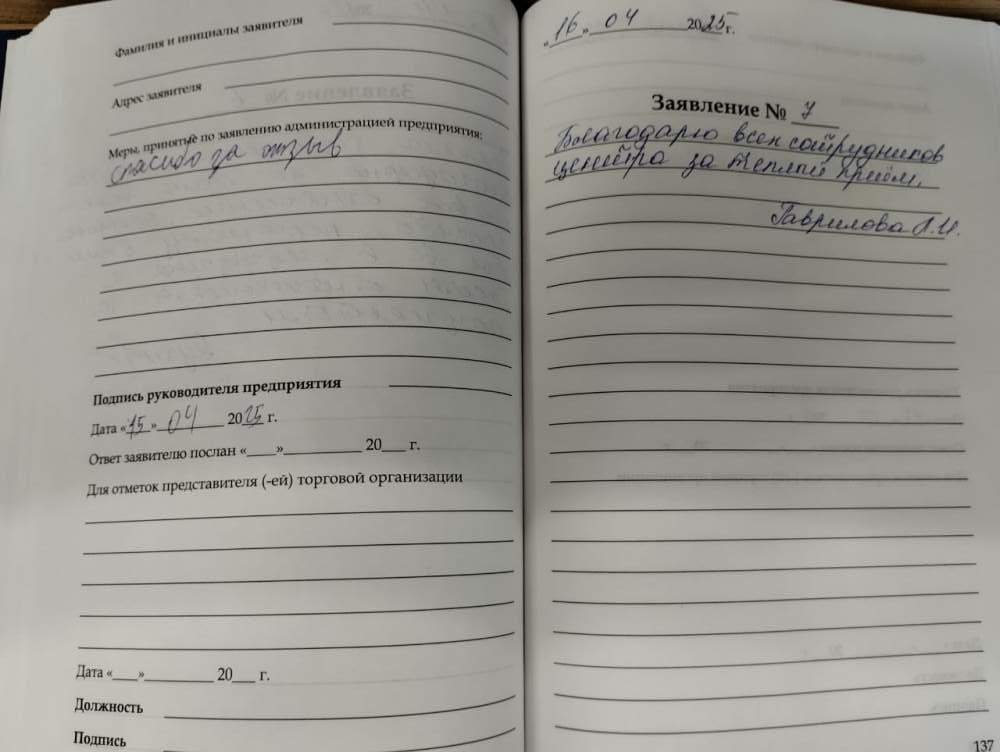 Фамилия и инициалы заявителя
Адрес заявителя
Меры, принятые по заявлению администрацией предприятия:
спасибо за отзыв
Подпись руководителя предприятия
Дата «15» 04 2025 г.
Ответ заявителю послан «___»__________ 20___ г.
Для отметок представителя (-ей) торговой организации
Дата «___»__________ 20___ г.
Должность
Подпись
«16» 04 2025 г.
Заявление № 7
Благодарю всех сотрудников
центра за теплый приём.
Гаврилова Л.И.
137